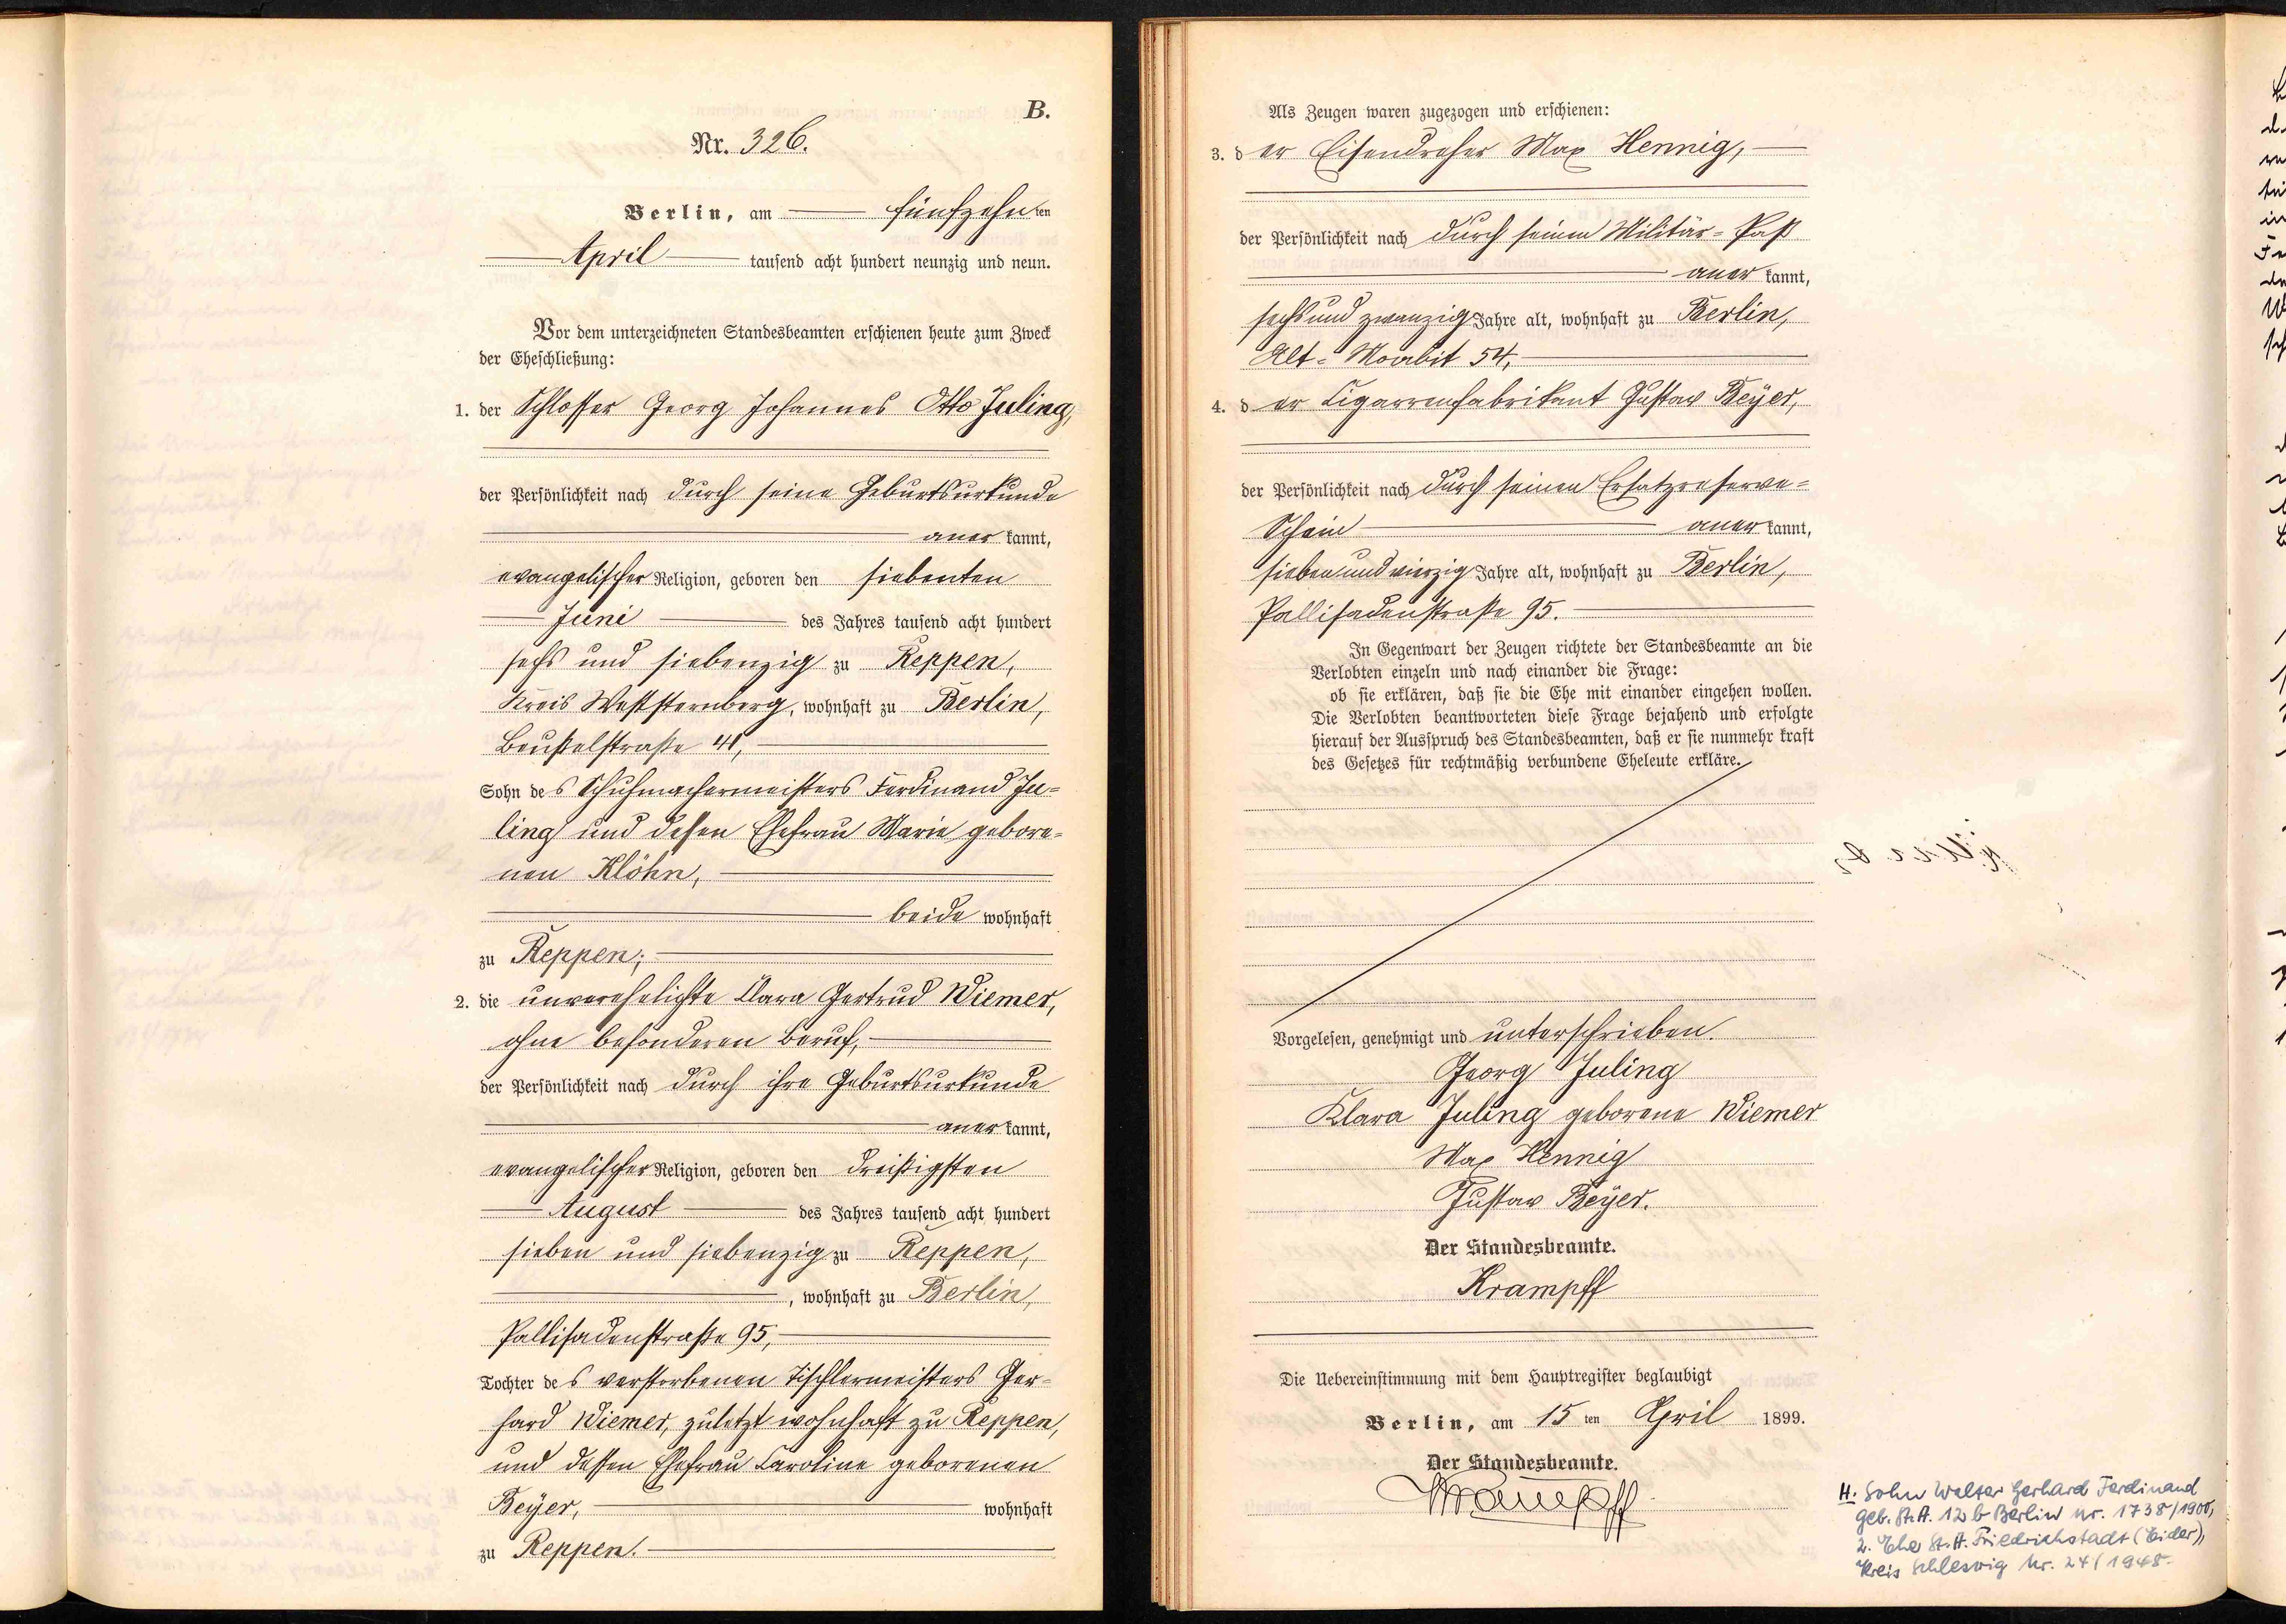 B.
Nr. 326.
Berlin, am fünfzehn ten
April tausend acht hundert neunzig und neun.
Vor dem unterzeichneten Standesbeamten erschienen heute zum Zweck
der Eheschließung:
1. der Schlosser Georg Johannes Otto Juling,
der Persönlichkeit nach durch seine Geburtsurkunde
aner kannt,
evangelischer Religion, geboren den siebenten
Juni des Jahres tausend acht hundert
sechs und siebenzig zu Reppen,
Kreis Weststernberg, wohnhaft zu Berlin,
Beußelstraße 41,
Sohn des Schuhmachermeisters Ferdinand Ju-
ling und dessen Ehefrau Marie gebore-
nen Klöhn,
beide wohnhaft
zu Reppen;
2. die unverehelichte Clara Gertrud Wiemer,
ohne besonderen Beruf,
der Persönlichkeit nach durch ihre Geburtsurkunde
aner kannt,
evangelischer Religion, geboren den dreißigsten
August des Jahres tausend acht hundert
sieben und siebenzig zu Reppen,
, wohnhaft zu Berlin,
Pallisadenstraße 95,
Tochter des verstorbenen Tischlermeisters Ger-
hard Wiemer, zuletzt wohnhaft zu Reppen,
und dessen Ehefrau Caroline geborenen
Beyer, wohnhaft
zu Reppen.
Als Zeugen waren zugezogen und erschienen:
3. der Eisendreher Max Hennig,
der Persönlichkeit nach durch seinen Militär-Paß
aner kannt,
sechs und zwanzig Jahre alt, wohnhaft zu Berlin,
Alt-Moabit 54,
4. der Cigarrenfabrikant Gustav Beyer,
der Persönlichkeit nach durch seinen Ersatzreserve-
Schein aner kannt,
sieben und vierzig Jahre alt, wohnhaft zu Berlin,
Pallisadenstraße 95.
In Gegenwart der Zeugen richtete der Standesbeamte an die
Verlobten einzeln und nach einander die Frage:
ob sie erklären, daß sie die Ehe mit einander eingehen wollen.
Die Verlobten beantworteten diese Frage bejahend und erfolgte
hierauf der Ausspruch des Standesbeamten, daß er sie nunmehr kraft
des Gesetzes für rechtmäßig verbundene Eheleute erkläre.
Vorgelesen, genehmigt und unterschrieben.
Georg Juling
Klara Juling geborene Wiemer
Max Hennig
Gustav Beyer.
Der Standesbeamte.
Krampff
Die Uebereinstimmung mit dem Hauptregister beglaubigt
Berlin, am 15 ten April 1899.
Der Standesbeamte.
Krampff
H. Sohn Walter Gerhard Ferdinand
geb. St. A. 12b Berlin Nr. 1738/1900,
2. Ehe St. A. Friedrichstadt (Eider),
Kreis Schleswig Nr. 24/1948